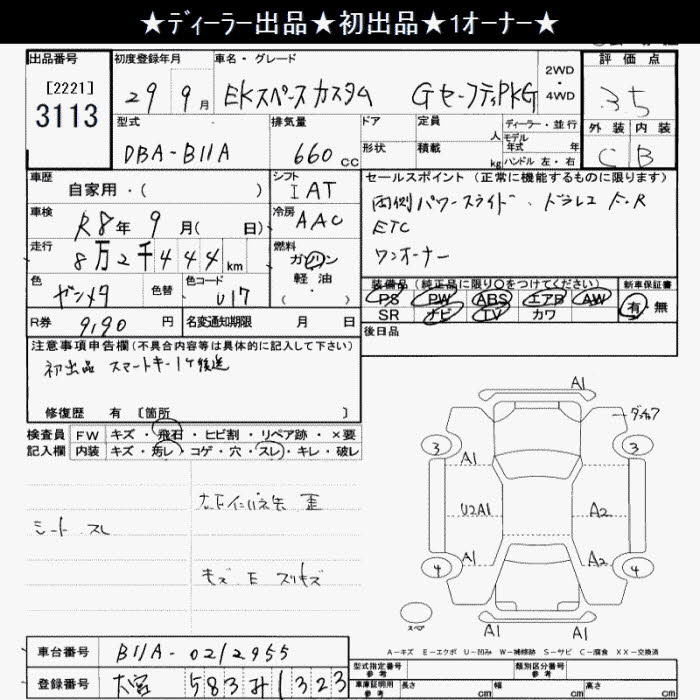 ★ディーラー出品★初出品★1オーナー★
出品番号 初度登録年月 車名・グレード 2WD・4WD 評価点
[2221]
3113
29 9月 EKスペースカスタム GセーフティPKG 3.5
型式 排気量 ドア 定員 人 ディーラー・並行 外装 内装
DBA-B11A 660cc 形状 積載 kg モデル年式 年 ハンドル 左・右 C B
車歴 自家用・( ) シフト IAT セールスポイント(正常に機能するものに限ります)
車検 R8年9月( 日) 冷房 AAC 両側パワースライド、ドラレコ F・R
ETC
走行 8万2千444km 燃料 ガソリン 軽油・( ) ワンオーナー
色 ガンメタ 色替 色コード U17 装備品(純正品に限り○をつけてください) 新車保証書
PS PW ABS エアB AW 有 無
SR ナビ TV カワ
R券 9,190円 名変通知期限 月 日 後日品
注意事項申告欄(不具合内容等は具体的に記入して下さい)
初出品 スマートキー1ケ後送
修復歴 有 [箇所 ]
検査員 FW キズ・飛石・ヒビ割・リペア跡・×要
記入欄 内装 キズ・汚レ・コゲ・穴・スレ・キレ・破レ
シート スレ
キズ E スリキズ
A1
3 A1 3
U2A1 A2
4 A1 A2 4
スペア A1 A1
A－キズ E－エクボ U－凹み W－補修跡 S－サビ C－腐食 XX－交換済
車台番号 B11A-0212955
登録番号 大宮 583 み 1323
型式指定番号 参考 類別区分番号 参考
車庫証明用 参考 長さ cm 幅 cm 高さ cm